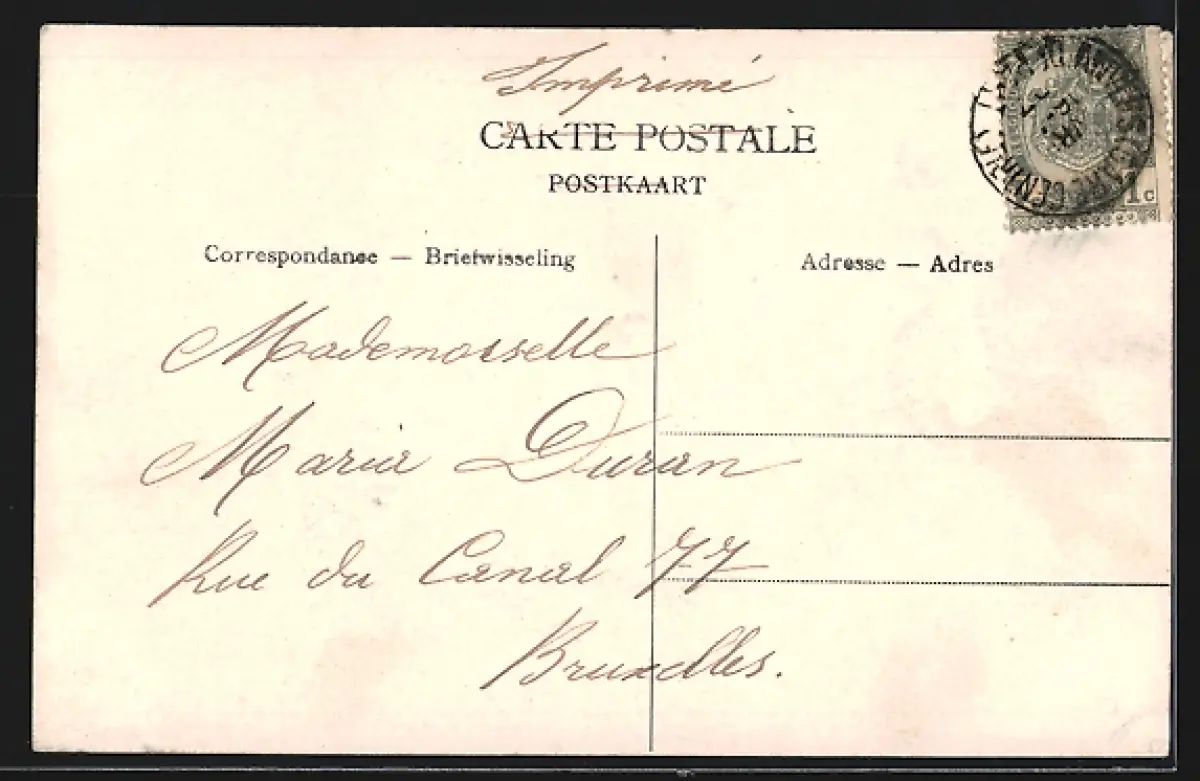 Imprimé
CARTE POSTALE
POSTKAART
Correspondance — Briefwisseling
Adresse — Adres
1c
Mademoiselle
Maria Duran
Rue du Canal 77
Bruxelles.